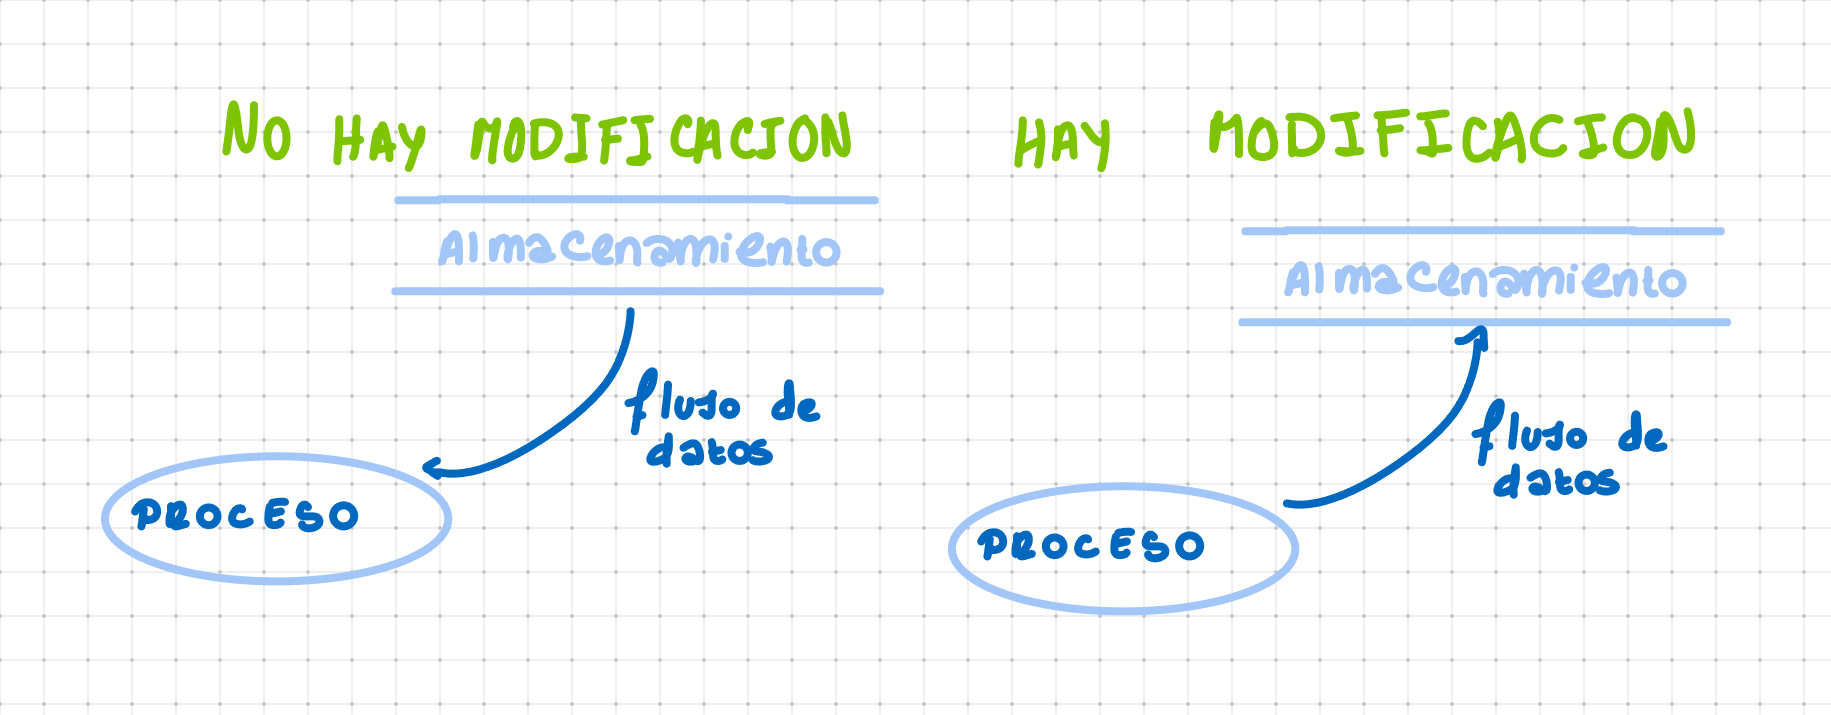 NO HAY MODIFICACION
Almacenamiento
flujo de
datos
PROCESO
HAY MODIFICACION
Almacenamiento
flujo de
datos
PROCESO